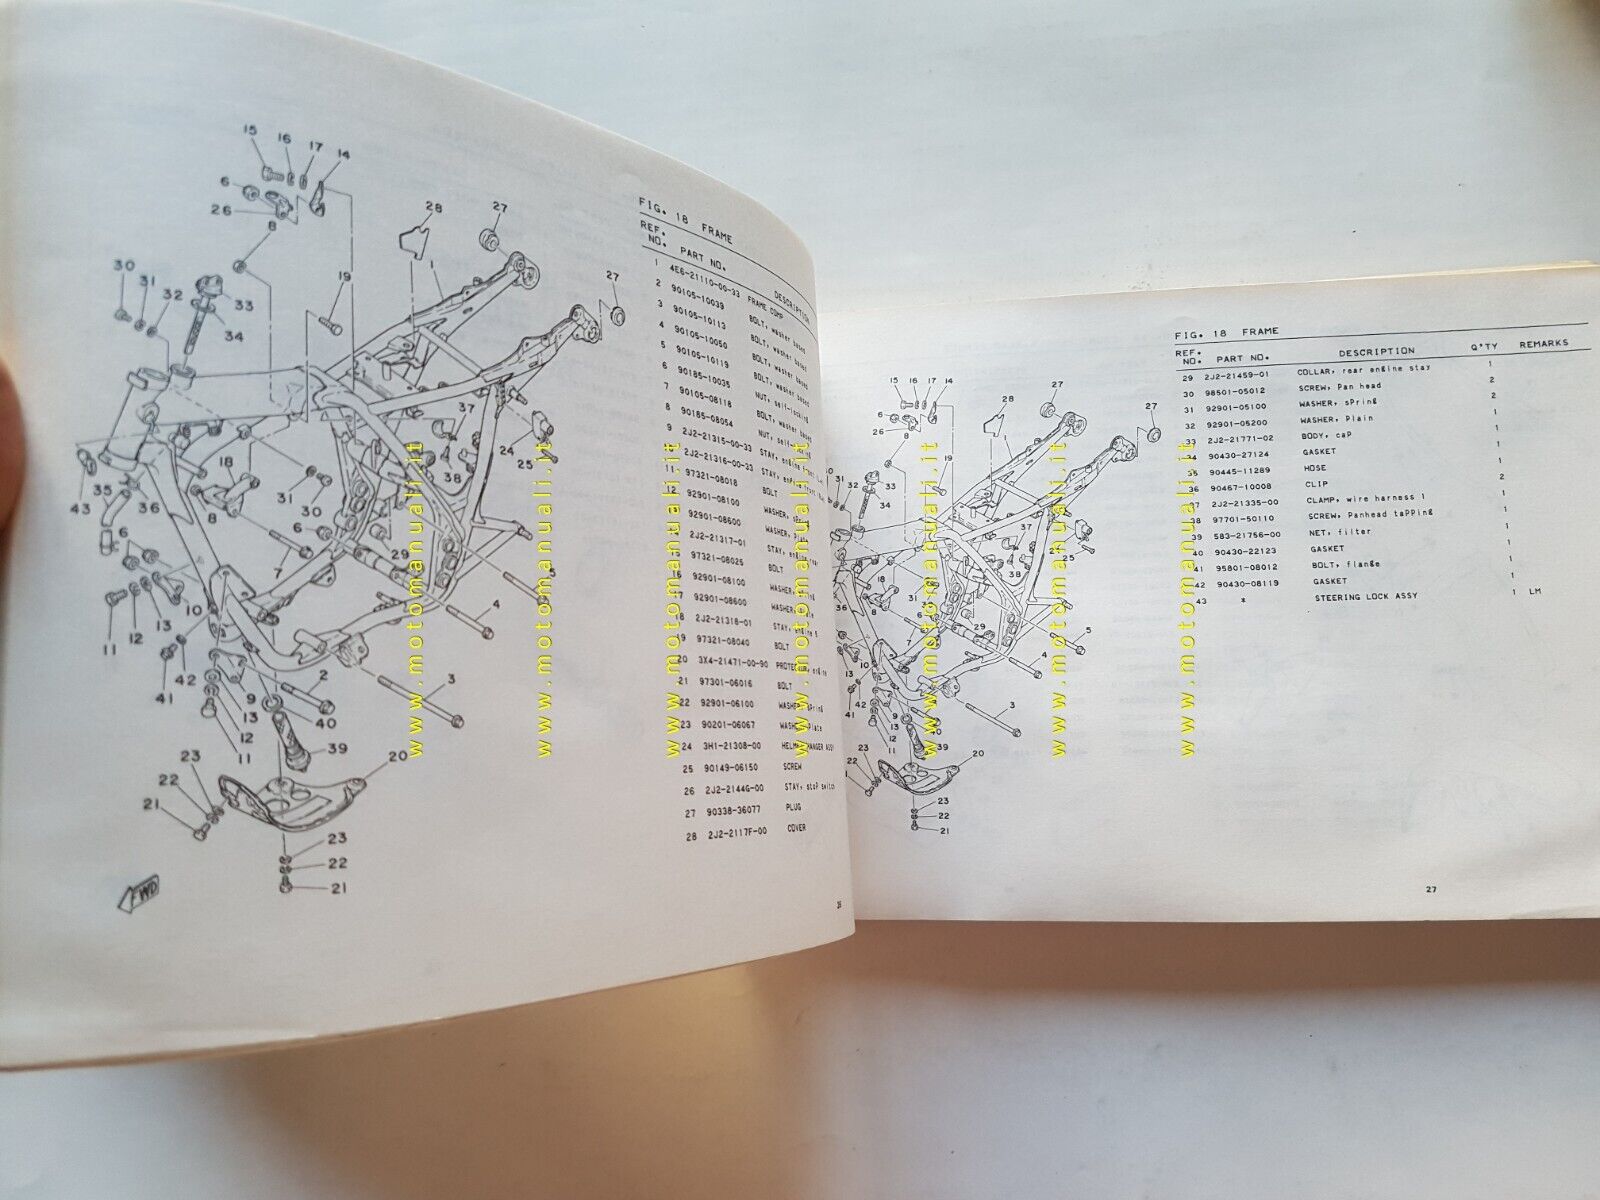 FIG. 18 FRAME
REF. NO. PART NO. DESCRIPTION
1 4E6-21110-00-33 FRAME COMP
2 90105-10039 BOLT, washer based
3 90105-10113 BOLT, washer based
4 90105-10050 BOLT, washer based
5 90105-10119 BOLT, washer based
6 90185-10035 NUT, self-locking
7 90105-08118 BOLT, washer based
8 90185-08054 NUT, self-
9 2J2-21315-00-33 STAY, engine
2J2-21316-00-33 STAY, engine
11 97321-08018 BOLT
12 92901-08100 WASHER, spring
92901-08600 WASHER, plain
2J2-21317-01 STAY, engine
15 97321-08025 BOLT
16 92901-08100 WASHER,
92901-08600 WASHER,
18 2J2-21318-01 STAY, engine
19 97321-08040 BOLT
20 3X4-21471-00-90 PROTECTOR, engine
21 97301-06016 BOLT
22 92901-06100 WASHER, spring
23 90201-06067 WASHER, plate
24 3H1-21308-00 HELMET HANGER ASSY
25 90149-06150 SCREW
26 2J2-2144G-00 STAY, stop switch
27 90338-36077 PLUG
28 2J2-2117F-00 COVER
FWD
26
FIG. 18 FRAME
REF. NO. PART NO. DESCRIPTION Q'TY REMARKS
29 2J2-21459-01 COLLAR, rear engine stay 1
30 98501-05012 SCREW, Pan head 2
31 92901-05100 WASHER, spring 2
32 92901-05200 WASHER, plain 1
33 2J2-21771-02 BODY, cap 1
34 90430-27124 GASKET 1
35 90445-11289 HOSE 1
36 90467-10008 CLIP 2
37 2J2-21335-00 CLAMP, wire harness 1 1
38 97701-50110 SCREW, Panhead tapping 1
39 583-21756-00 NET, filter 1
40 90430-22123 GASKET 1
41 95801-08012 BOLT, flange 1
42 90430-08119 GASKET 1
43 * STEERING LOCK ASSY 1 LM
27
www.motomanuali.it
www.motomanuali.it
www.motomanuali.it
www.motomanuali.it
www.motomanuali.it
www.motomanuali.it
www.motomanuali.it